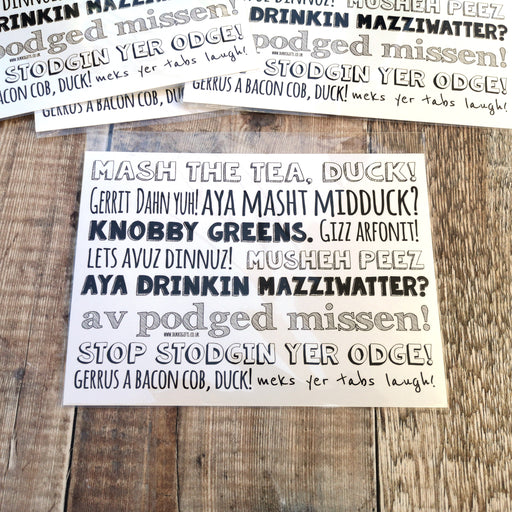 DRINKIN MAZZIWATTER?
podged missen!
STODGIN YER ODGE!
BACON COB, DUCK! meks yer tabs laugh!
MUSHEH PEEZ
DRINKIN MAZZIWATTER?
podged missen!
STODGIN YER ODGE!
GERRUS A BACON COB, DUCK! meks yer tabs laugh!
GERRUS A BACON COB, DUCK!
MASH THE TEA, DUCK!
Gerrit Dahn yuh! AYA MASHT MIDDUCK?
KNOBBY GREENS. Gizz arfonit!
LETS AVUZ DINNUZ! MUSHEH PEEZ
AYA DRINKIN MAZZIWATTER?
av podged missen!
STOP STODGIN YER ODGE!
GERRUS A BACON COB, DUCK! meks yer tabs laugh!